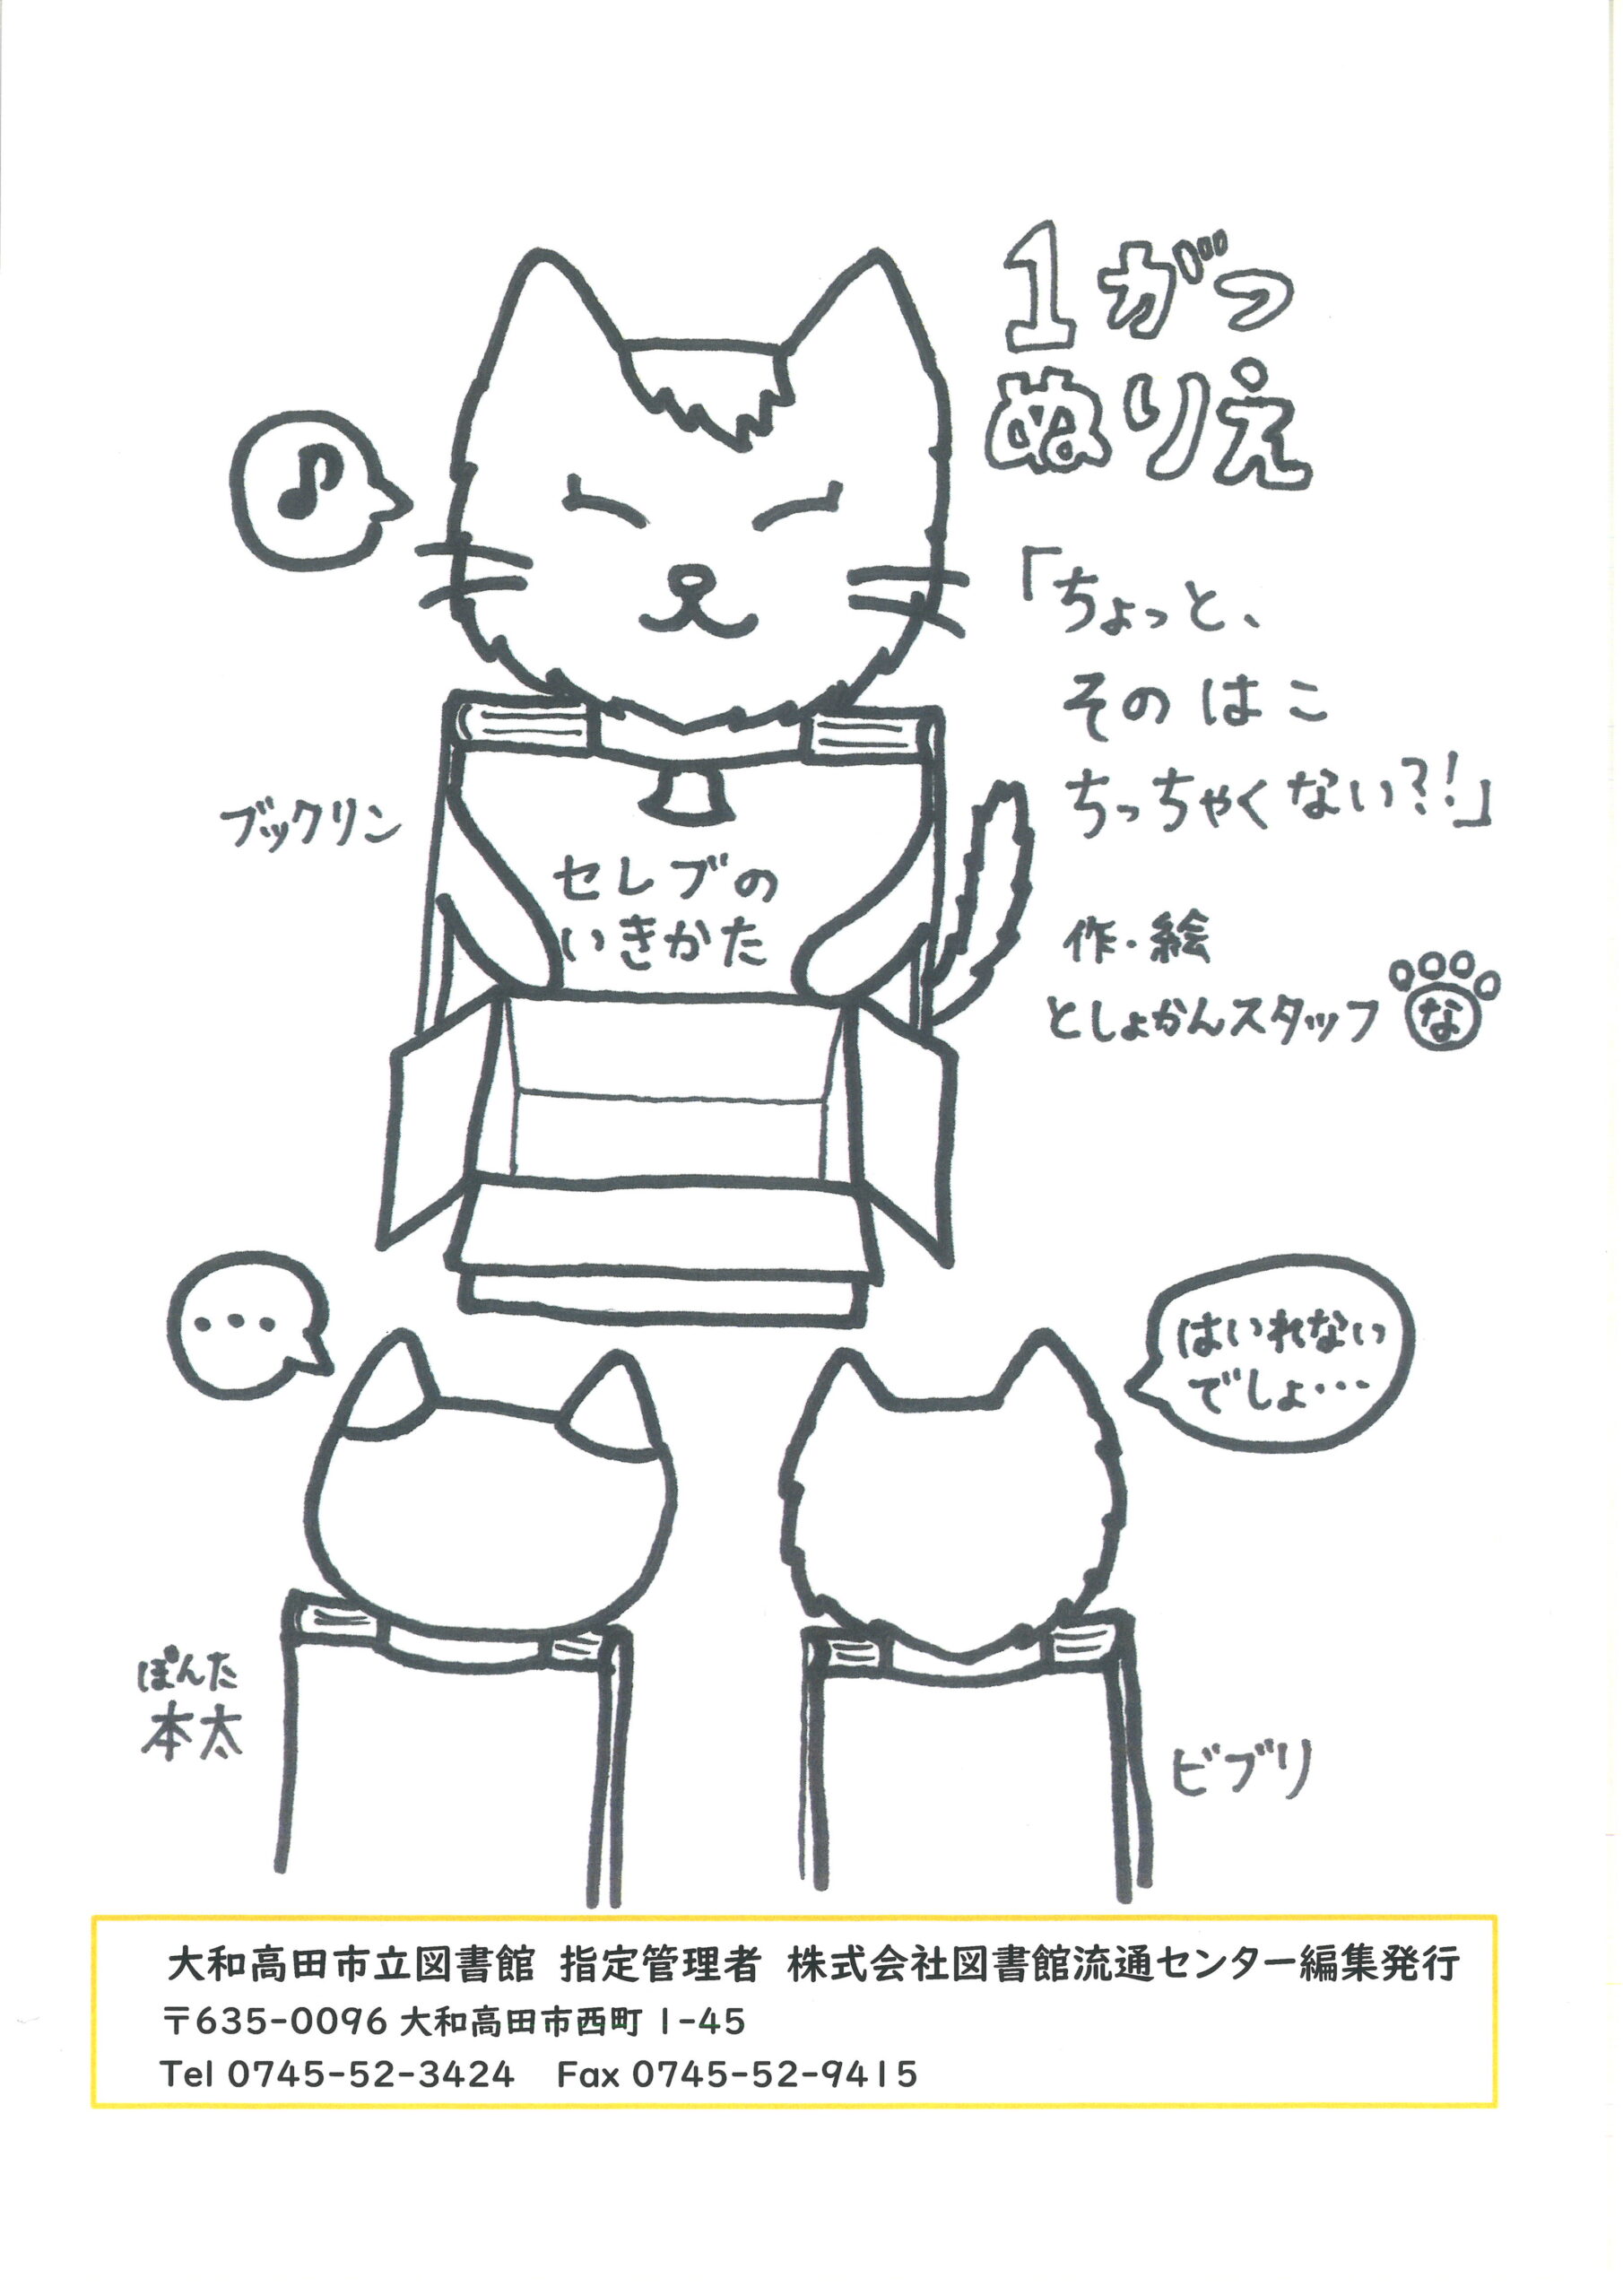 1がつ
ぬりえ
「ちょっと、
そのはこ
ちっちゃくない?!」
作・絵
としょかんスタッフ な
ブックリン
セレブの
いきかた
・・・
はいれない
でしょ・・・
ぽんた
本太
ビブリ
大和高田市立図書館 指定管理者 株式会社図書館流通センター編集発行
〒635-0096 大和高田市西町 1-45
Tel 0745-52-3424 Fax 0745-52-9415